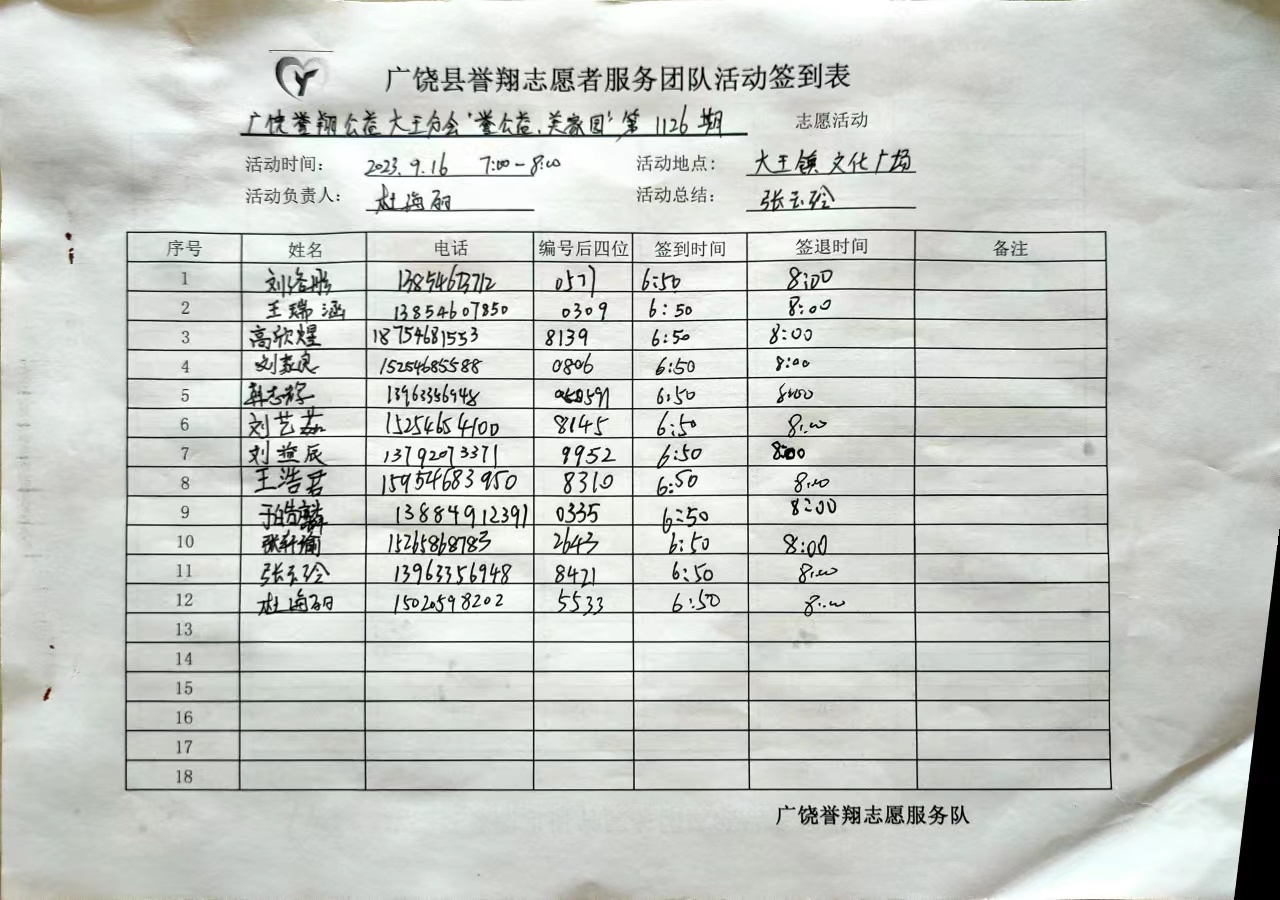 广饶县誉翔志愿者服务团队活动签到表
广饶誉翔公益大王分会“誉公益、美家园”第1126期 志愿活动
活动时间: 2023.9.16 7:00-8:00 活动地点: 大王镇文化广场
活动负责人: 杜海丽 活动总结: 张玉玲
序号 姓名 电话 编号后四位 签到时间 签退时间 备注
1 6:50 8:00
2 王瑞涵 13854607850 0309 6:50 8:00
3 高欣煜 18754681553 8139 6:50 8:00
4 15254685588 0806 6:50 8:00
5 13963356948 6:50 8:00
6 刘艺茹 15254654100 8145 6:50 8:00
7 刘益辰 13792073371 9952 6:50 8:00
8 王浩君 15954683950 8310 6:50 8:00
9 于皓麟 13884912391 0335 6:50 8:00
10 15265868783 2643 6:50 8:00
11 张玉玲 13963356948 8421 6:50 8:00
12 杜海丽 15020598202 5533 6:50 8:00
13
14
15
16
17
18
广饶誉翔志愿服务队